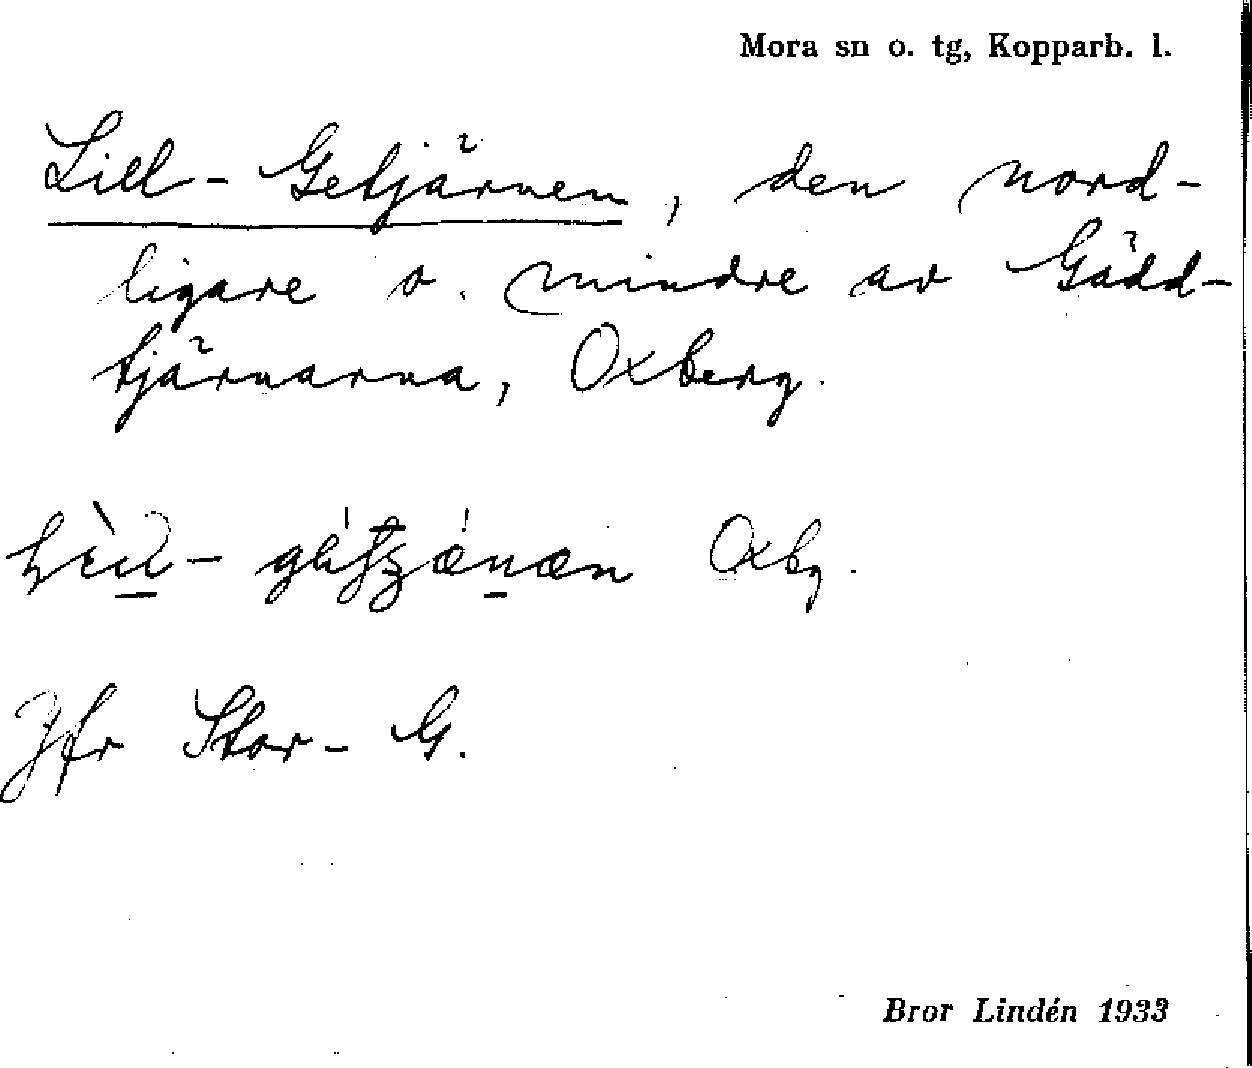 Mora sn o. tg, Kopparb. l.
Lill-Getjärnen, den nord-
ligare o. mindre av Gädd-
tjärnarna, Oxberg.
Oxbg.
Jfr Stor-G.
Bror Lindén 1933